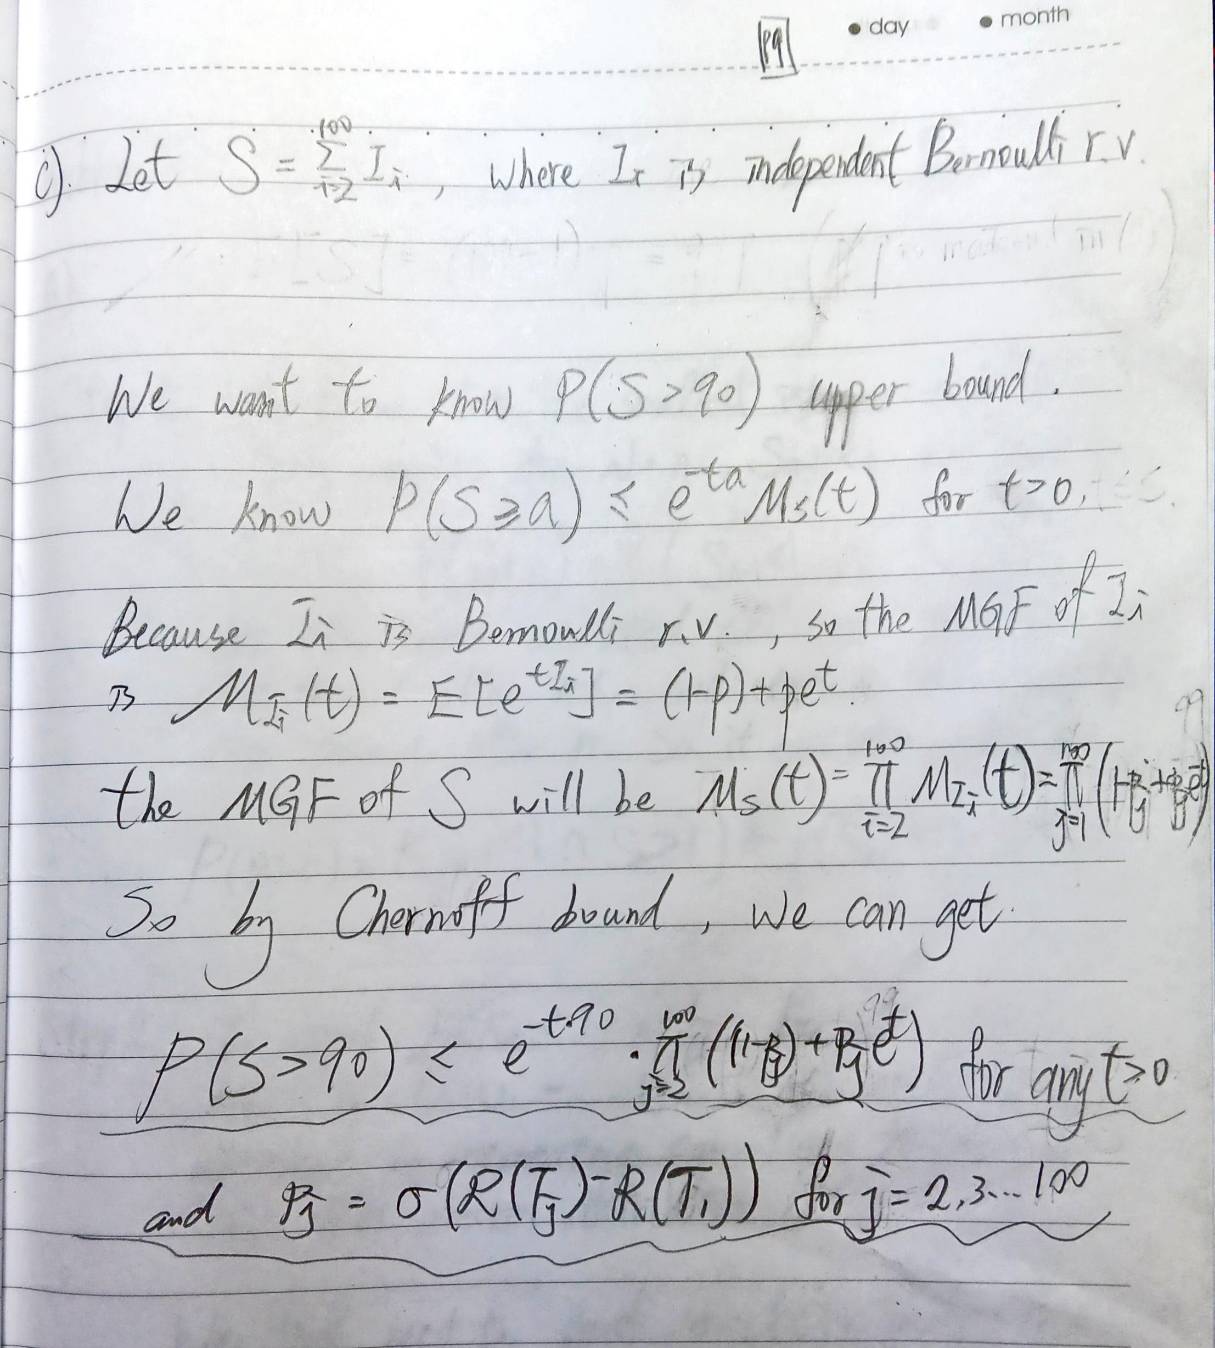 P9 • day • month
c). Let S = \sum_{i=2}^{100} I_i , where I_i is independent Bernoulli r.v.
We want to know P(S>90) upper bound.
We know P(S≥a) ≤ e^{-ta} M_S(t) for t>0.
Because I_i is Bernoulli r.v. , so the MGF of I_i
is M_{I_i}(t) = E[e^{tI_i}] = (1-p)+pe^t.
the MGF of S will be M_S(t) = \prod_{i=2}^{100} M_{I_i}(t) = \prod_{j=1}^{100} (1-P_j+P_j e^t)
So by Chernoff bound, we can get.
P(S>90) ≤ e^{-t·90} · \prod_{j=2}^{100} ((1-P_j)+P_j e^t) for any t>0
and P_j = σ(R(T_j)-R(T_1)) for j=2,3...100